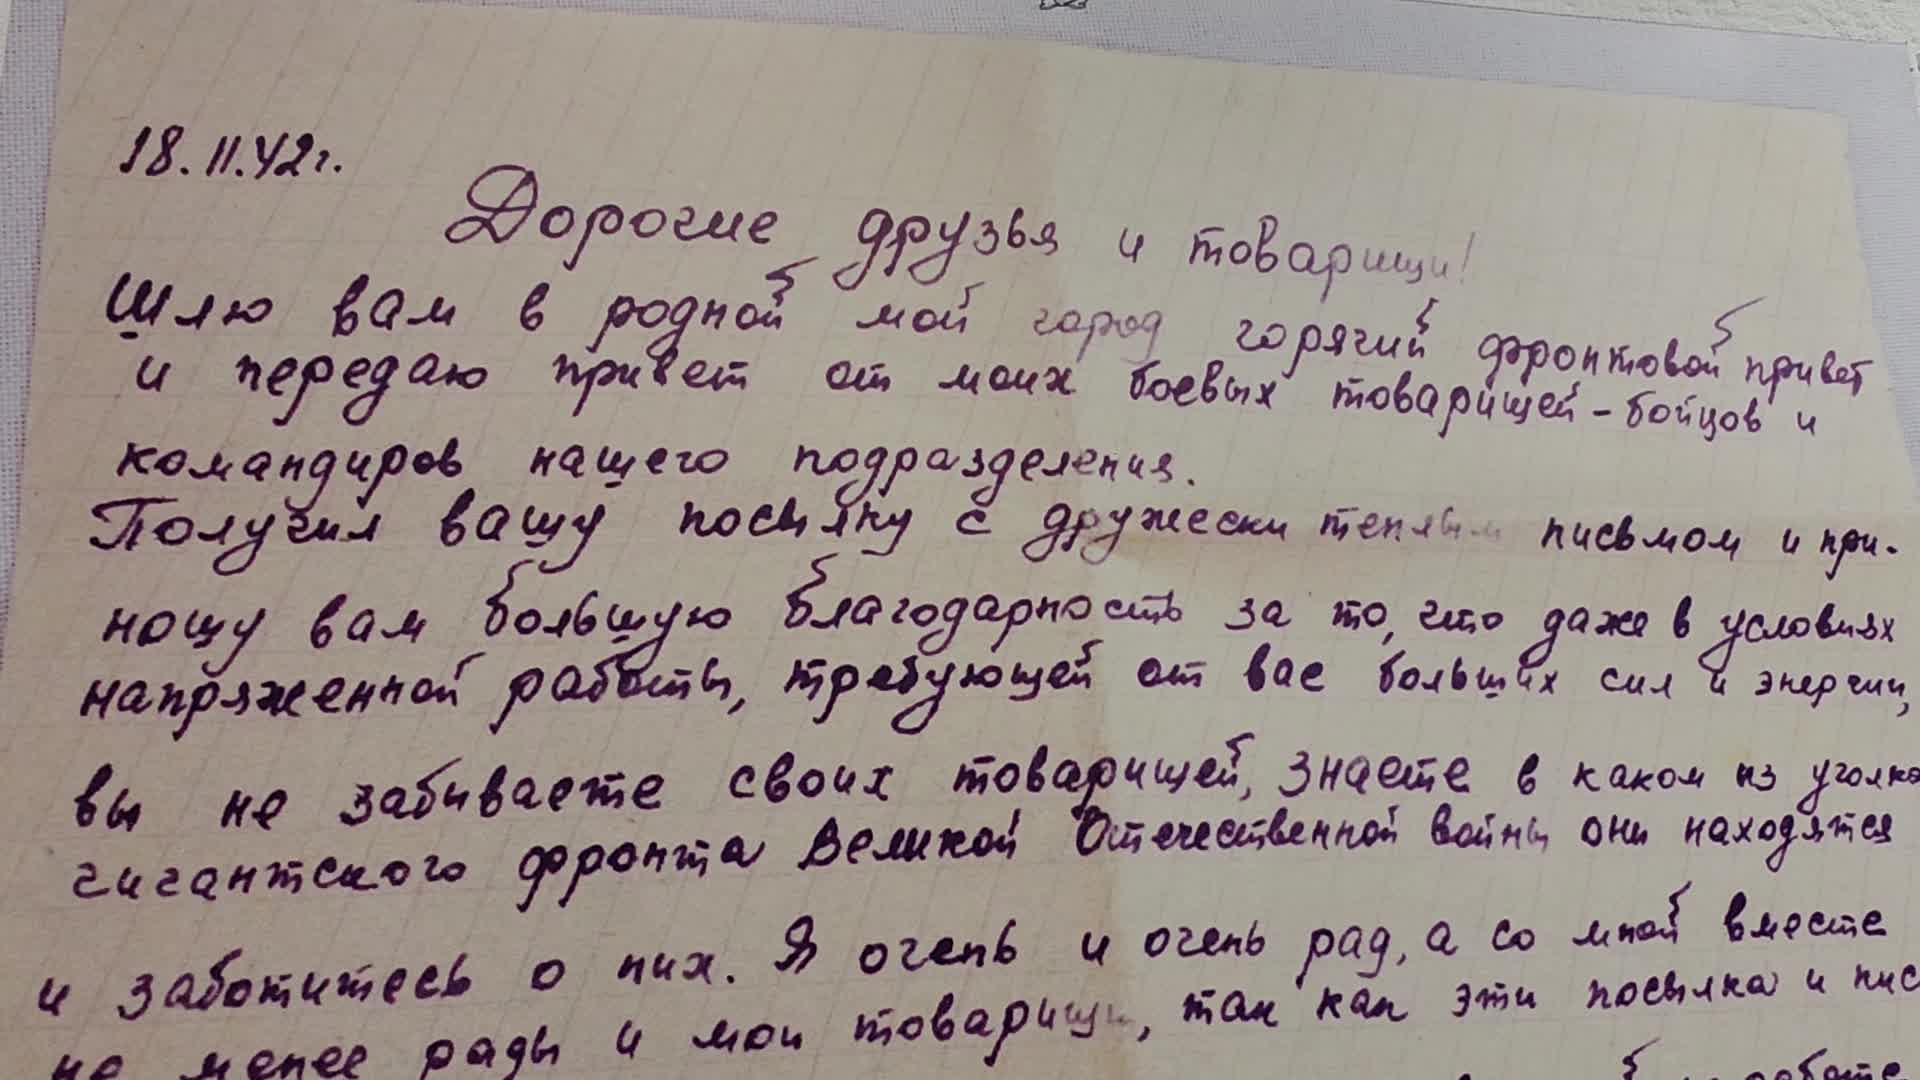 18.II.42г.
Дорогие друзья и товарищи!
Шлю вам в родной мой город горячий фронтовой привет
и передаю привет от моих боевых товарищей - бойцов и
командиров нашего подразделения.
Получил вашу посылку с дружески теплым письмом и при-
ношу вам большую благодарность за то, что даже в условиях
напряженной работы, требующей от вас больших сил и энергии,
вы не забываете своих товарищей, знаете в каком из уголков
гигантского фронта Великой Отечественной войны они находятся
и заботитесь о них. Я очень и очень рад, а со мной вместе
не менее рады и мои товарищи, так как эти посылка и пис